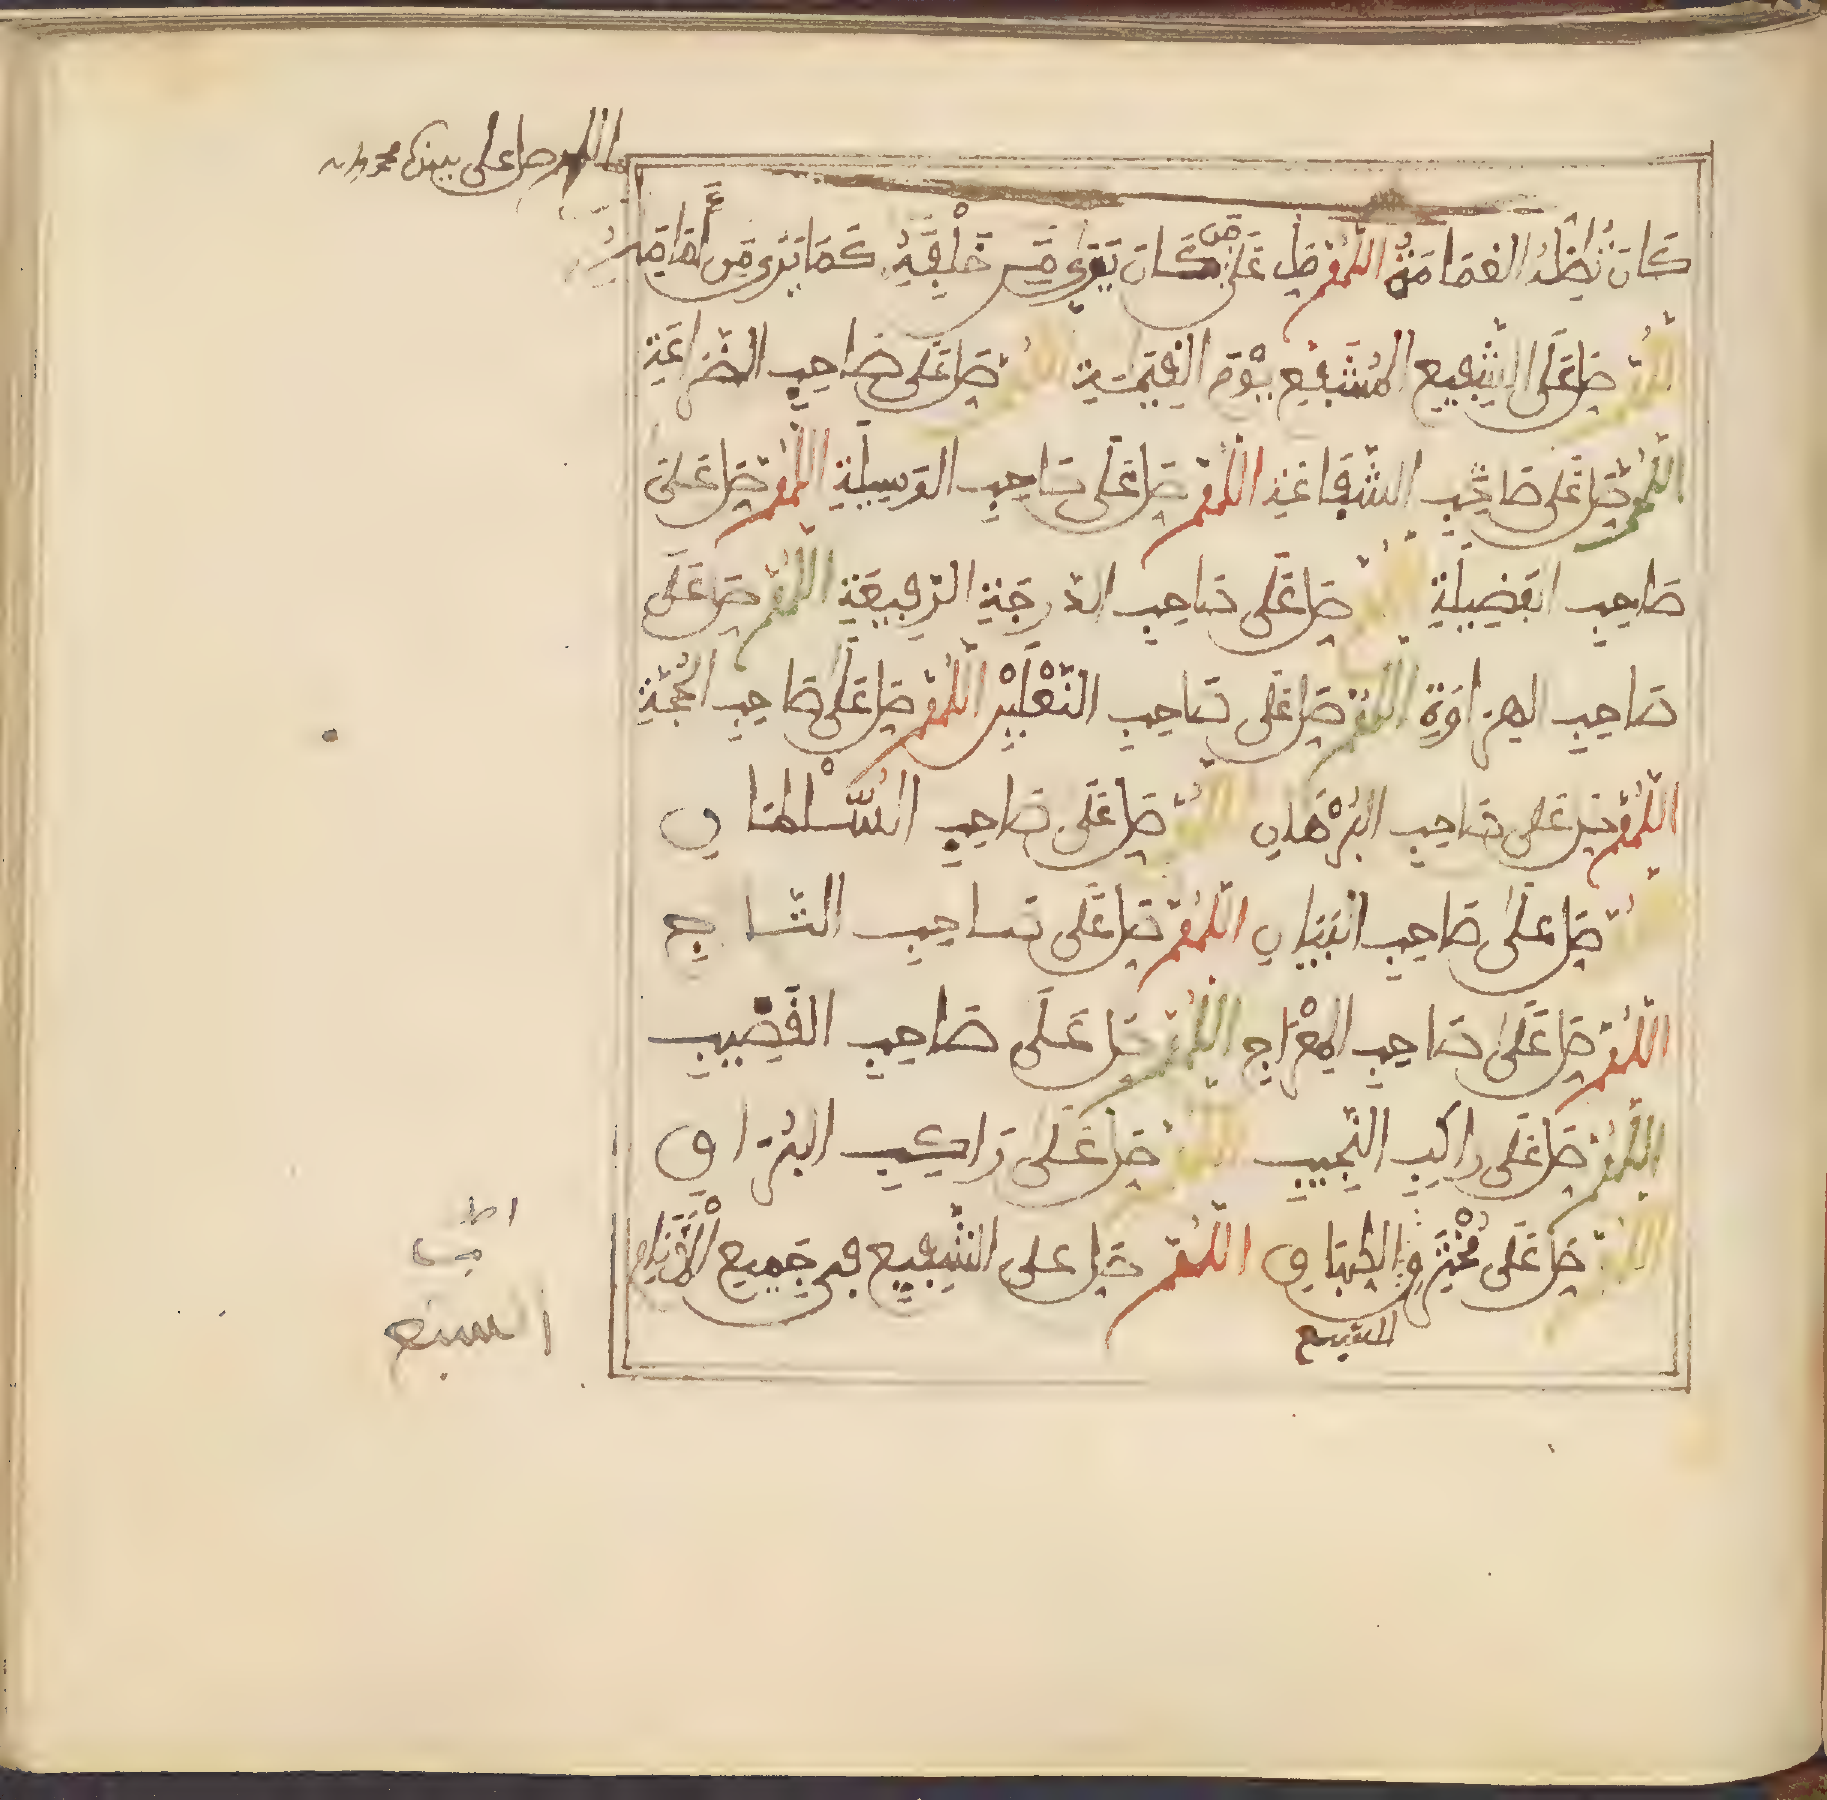 اللهم صل على سيدنا محمد واله
كَانَ تُظِلُّهُ الغَمَامَةُ اللَّهُمَّ صَلِّ عَلَى مَن كَانَ يَرَى مَنْ خَلْفَهُ كَمَا يَرَى مَنْ أَمَامَهُ
اللَّهُمَّ صَلِّ عَلَى الشَّفِيعِ المُشَفَّعِ يَوْمَ القِيَمَةِ اللَّهُمَّ صَلِّ عَلَى صَاحِبِ الضَّرَاعَةِ
اللَّهُمَّ صَلِّ عَلَى صَاحِبِ الشَّفَاعَةِ اللَّهُمَّ صَلِّ عَلَى صَاحِبِ الوَسِيلَةِ اللَّهُمَّ صَلِّ عَلَى
صَاحِبِ الفَضِيلَةِ اللَّهُمَّ صَلِّ عَلَى صَاحِبِ الدَّرَجَةِ الرَّفِيعَةِ اللَّهُمَّ صَلِّ عَلَى
صَاحِبِ الهِرَاوَةِ اللَّهُمَّ صَلِّ عَلَى صَاحِبِ النَّعْلَيْنِ اللَّهُمَّ صَلِّ عَلَى صَاحِبِ الحُجَّةِ
اللَّهُمَّ صَلِّ عَلَى صَاحِبِ البُرْهَانِ اللَّهُمَّ صَلِّ عَلَى صَاحِبِ السُّلْطَانِ
اللَّهُمَّ صَلِّ عَلَى صَاحِبِ التِّبْيَانِ اللَّهُمَّ صَلِّ عَلَى صَاحِبِ التَّاجِ
اللَّهُمَّ صَلِّ عَلَى صَاحِبِ المِعْرَاجِ اللَّهُمَّ صَلِّ عَلَى صَاحِبِ القَضِيبِ
اللَّهُمَّ صَلِّ عَلَى رَاكِبِ النَّجِيبِ اللَّهُمَّ صَلِّ عَلَى رَاكِبِ البُرَاقِ
اللَّهُمَّ صَلِّ عَلَى مُخْتَرِقِ الطِّبَاقِ اللَّهُمَّ صَلِّ عَلَى الشَّفِيعِ فِي جَمِيعِ الأَنَامِ
السبع
السبع